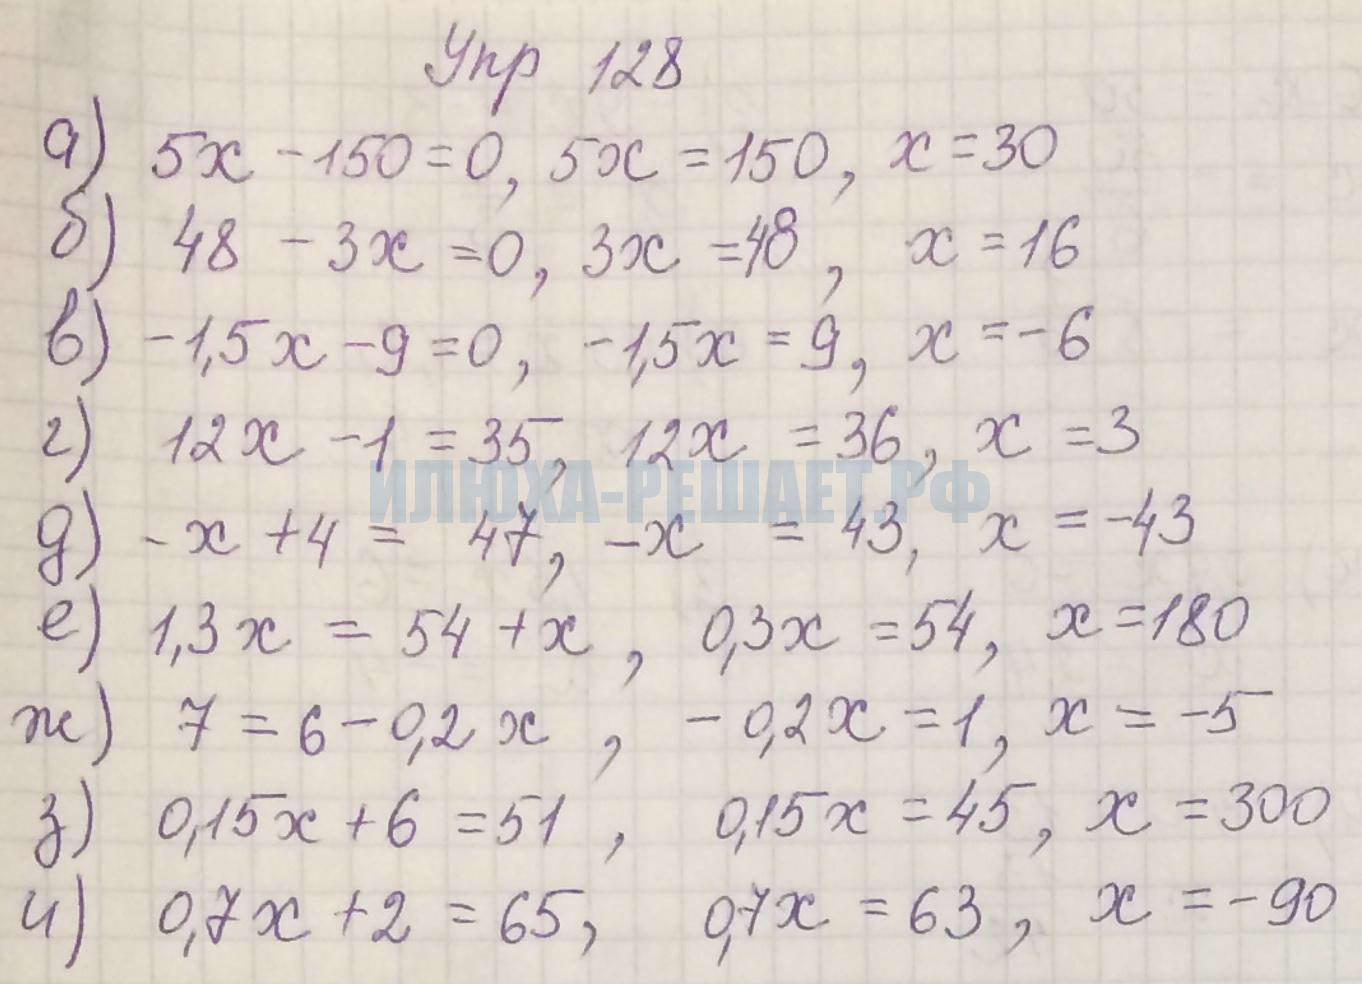 Упр 128
а) 5х - 150 = 0, 5х = 150, х = 30
б) 48 - 3х = 0, 3х = 48, х = 16
в) -1,5х - 9 = 0, -1,5х = 9, х = -6
г) 12х - 1 = 35, 12х = 36, х = 3
ИЛЮХА-РЕШАЕТ.РФ
д) -х + 4 = 47, -х = 43, х = -43
е) 1,3х = 54 + х, 0,3х = 54, х = 180
ж) 7 = 6 - 0,2х, -0,2х = 1, х = -5
з) 0,15х + 6 = 51, 0,15х = 45, х = 300
и) 0,7х + 2 = 65, 0,7х = 63, х = -90